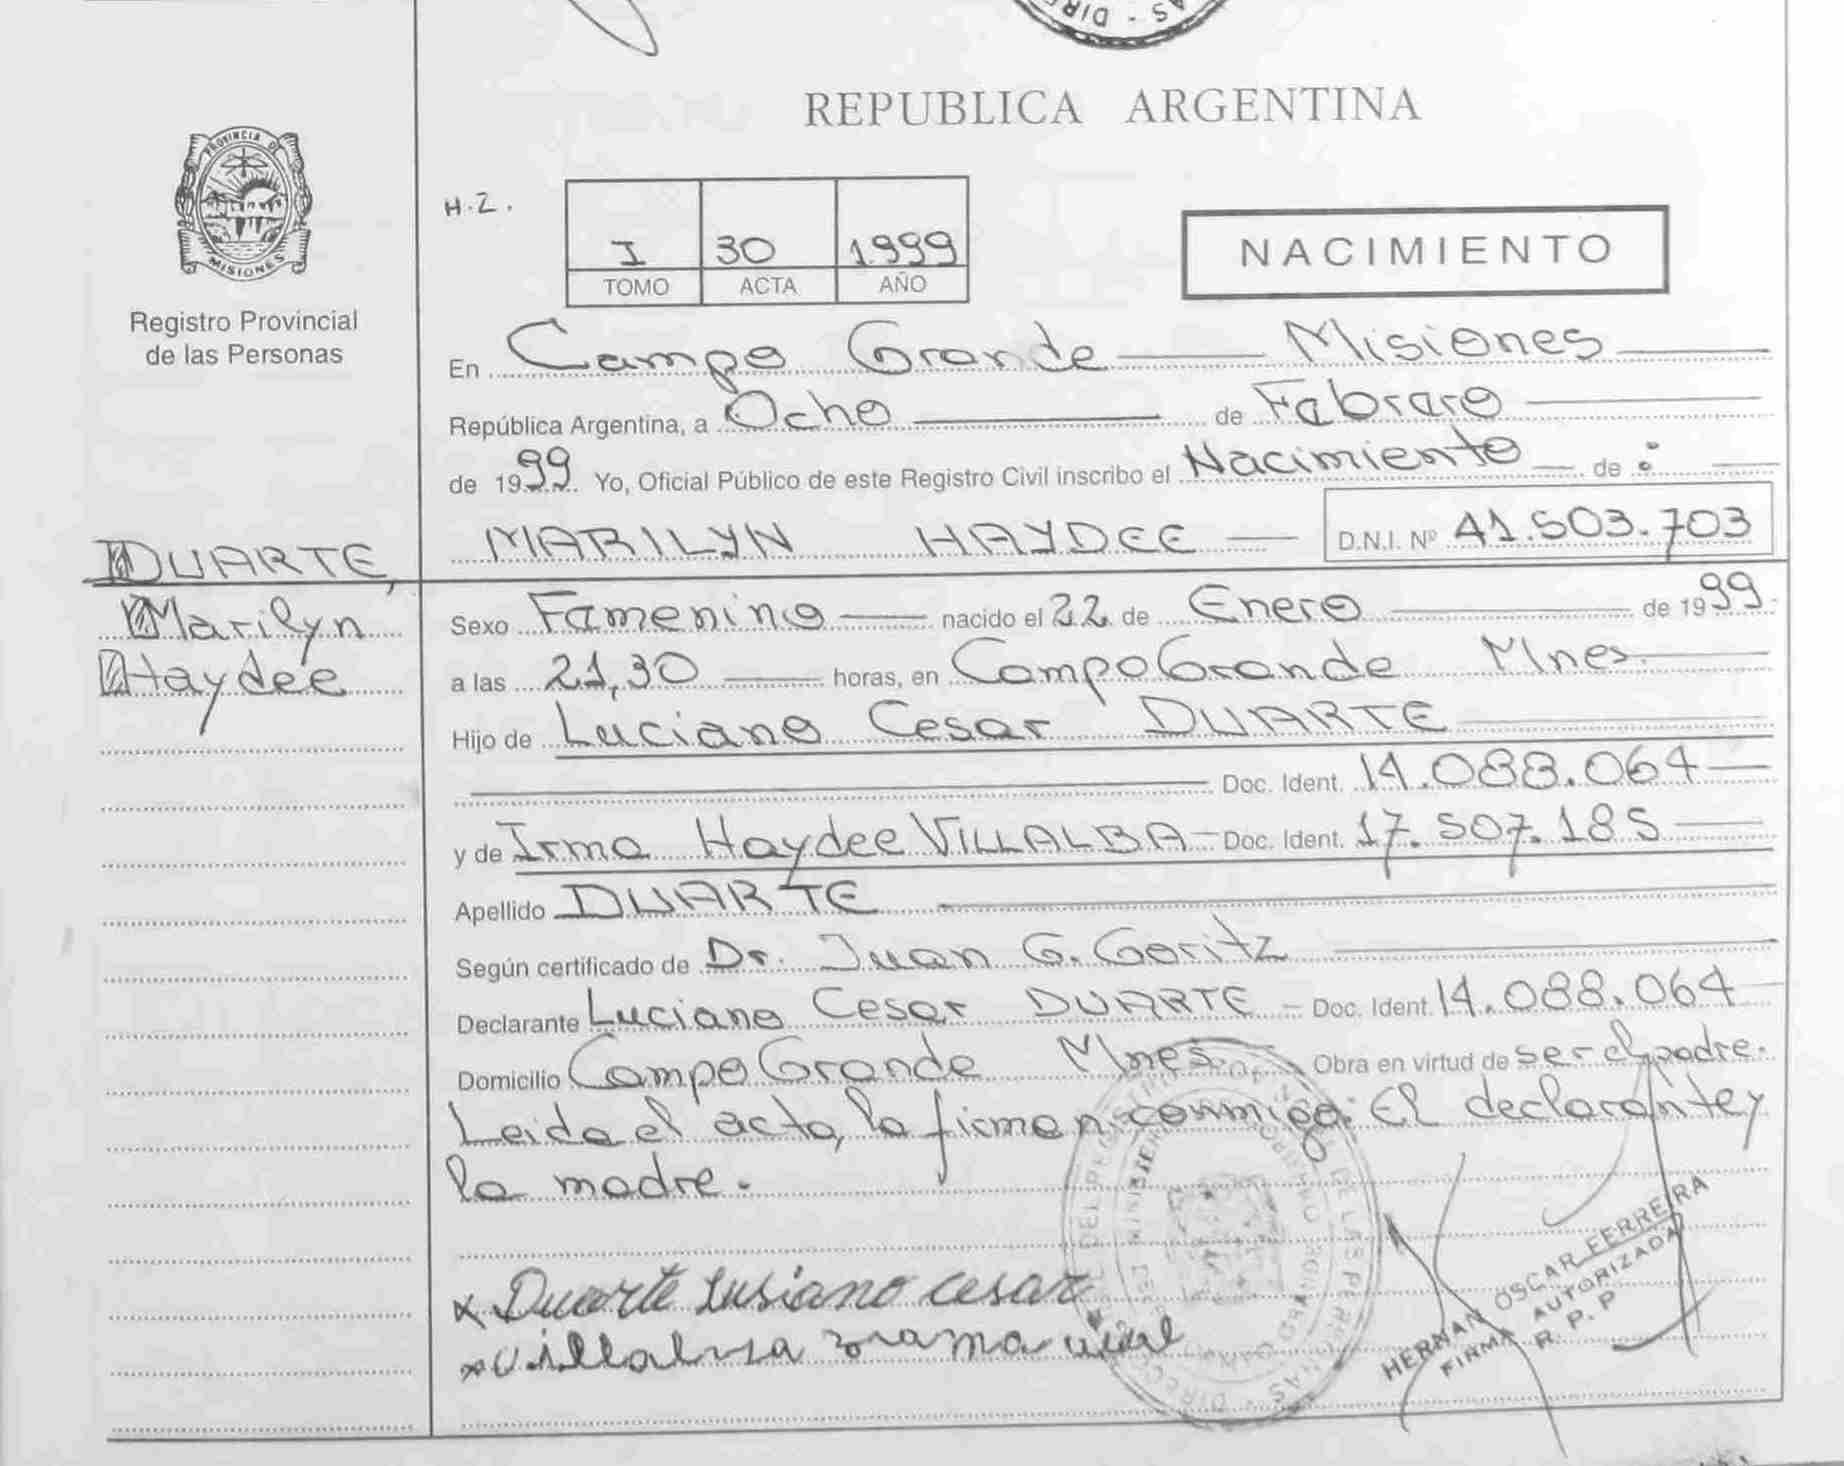 DIRE
REPUBLICA ARGENTINA
PROVINCIA DE
MISIONES
Registro Provincial
de las Personas
H.Z.
I 30 1.999
TOMO ACTA AÑO
NACIMIENTO
En Campo Grande Misiones
República Argentina, a Ocho de Febrero
de 1999 Yo, Oficial Público de este Registro Civil inscribo el Nacimiento de :
MARILYN HAYDEE D.N.I. Nº 41.503.703
DUARTE,
Marilyn
Haydee
Sexo Femenino nacido el 22 de Enero de 1999
a las 21,30 horas, en Campo Grande Mnes.
Hijo de Luciano Cesar DUARTE
Doc. Ident. 14.088.064
y de Irma Haydee VILLALBA Doc. Ident. 17.507.185
Apellido DUARTE
Según certificado de Dr. Juan G. Goritz
Declarante Luciano Cesar DUARTE Doc. Ident. 14.088.064
Domicilio Campo Grande Mnes. Obra en virtud de ser el padre.
Leida el acta, la firman conmigo: El declarante y
la madre.
x Duarte Lusiano cesar
HERNAN OSCAR FERREIRA
FIRMA AUTORIZADA
R. P. P